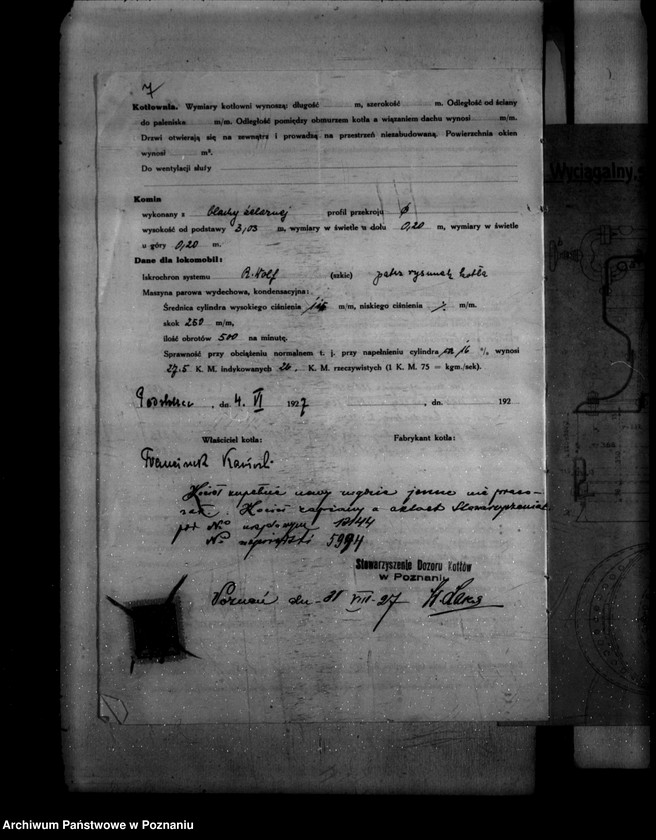 7
Kotłownia. Wymiary kotłowni wynoszą: długość m, szerokość m. Odległość od ściany
do paleniska m/m. Odległość pomiędzy obmurzem kotła a wiązaniem dachu wynosi m/m.
Drzwi otwierają się na zewnątrz i prowadzą na przestrzeń niezabudowaną. Powierzchnia okien
wynosi m².
Do wentylacji służy
Komin
wykonany z blachy żelaznej profil przekroju ϕ
wysokość od podstawy 3,03 m, wymiary w świetle u dołu 0,20 m, wymiary w świetle
u góry 0,20 m.
Dane dla lokomobil:
Iskrochron systemu R. Wolf (szkic) patrz rysunek kotła
Maszyna parowa wydechowa, kondensacyjna:
Średnica cylindra wysokiego ciśnienia m/m, niskiego ciśnienia m/m.
skok 250 m/m,
ilość obrotów 500 na minutę.
Sprawność przy obciążeniu normalnem t. j. przy napełnieniu cylindra 16 % wynosi
27.5 K. M. indykowanych 26. K. M. rzeczywistych (1 K. M. 75 = kgm./sek).
dn. 4. VI 1927 , dn. 192
Właściciel kotła: Fabrykant kotła:
Franciszek
Kocioł zupełnie nowy nigdzie jeszcze nie praco-
wał. Kocioł zapisany w aktach Stowarzyszenia
pod No 1244
No 5994
Stowarzyszenie Dozoru Kotłów
w Poznaniu
Poznań dn. 31 VIII-27
Wyciągalny
Archiwum Państwowe w Poznaniu